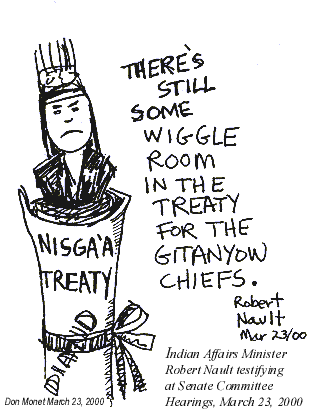 THERE'S
STILL
SOME
WIGGLE
ROOM
IN THE
TREATY
FOR THE
GITANYOW
CHIEFS.
Robert
Nault
Mar 23/00
NISGA'A
TREATY
Indian Affairs Minister
Robert Nault testifying
at Senate Committee
Hearings, March 23, 2000
Don Monet March 23, 2000